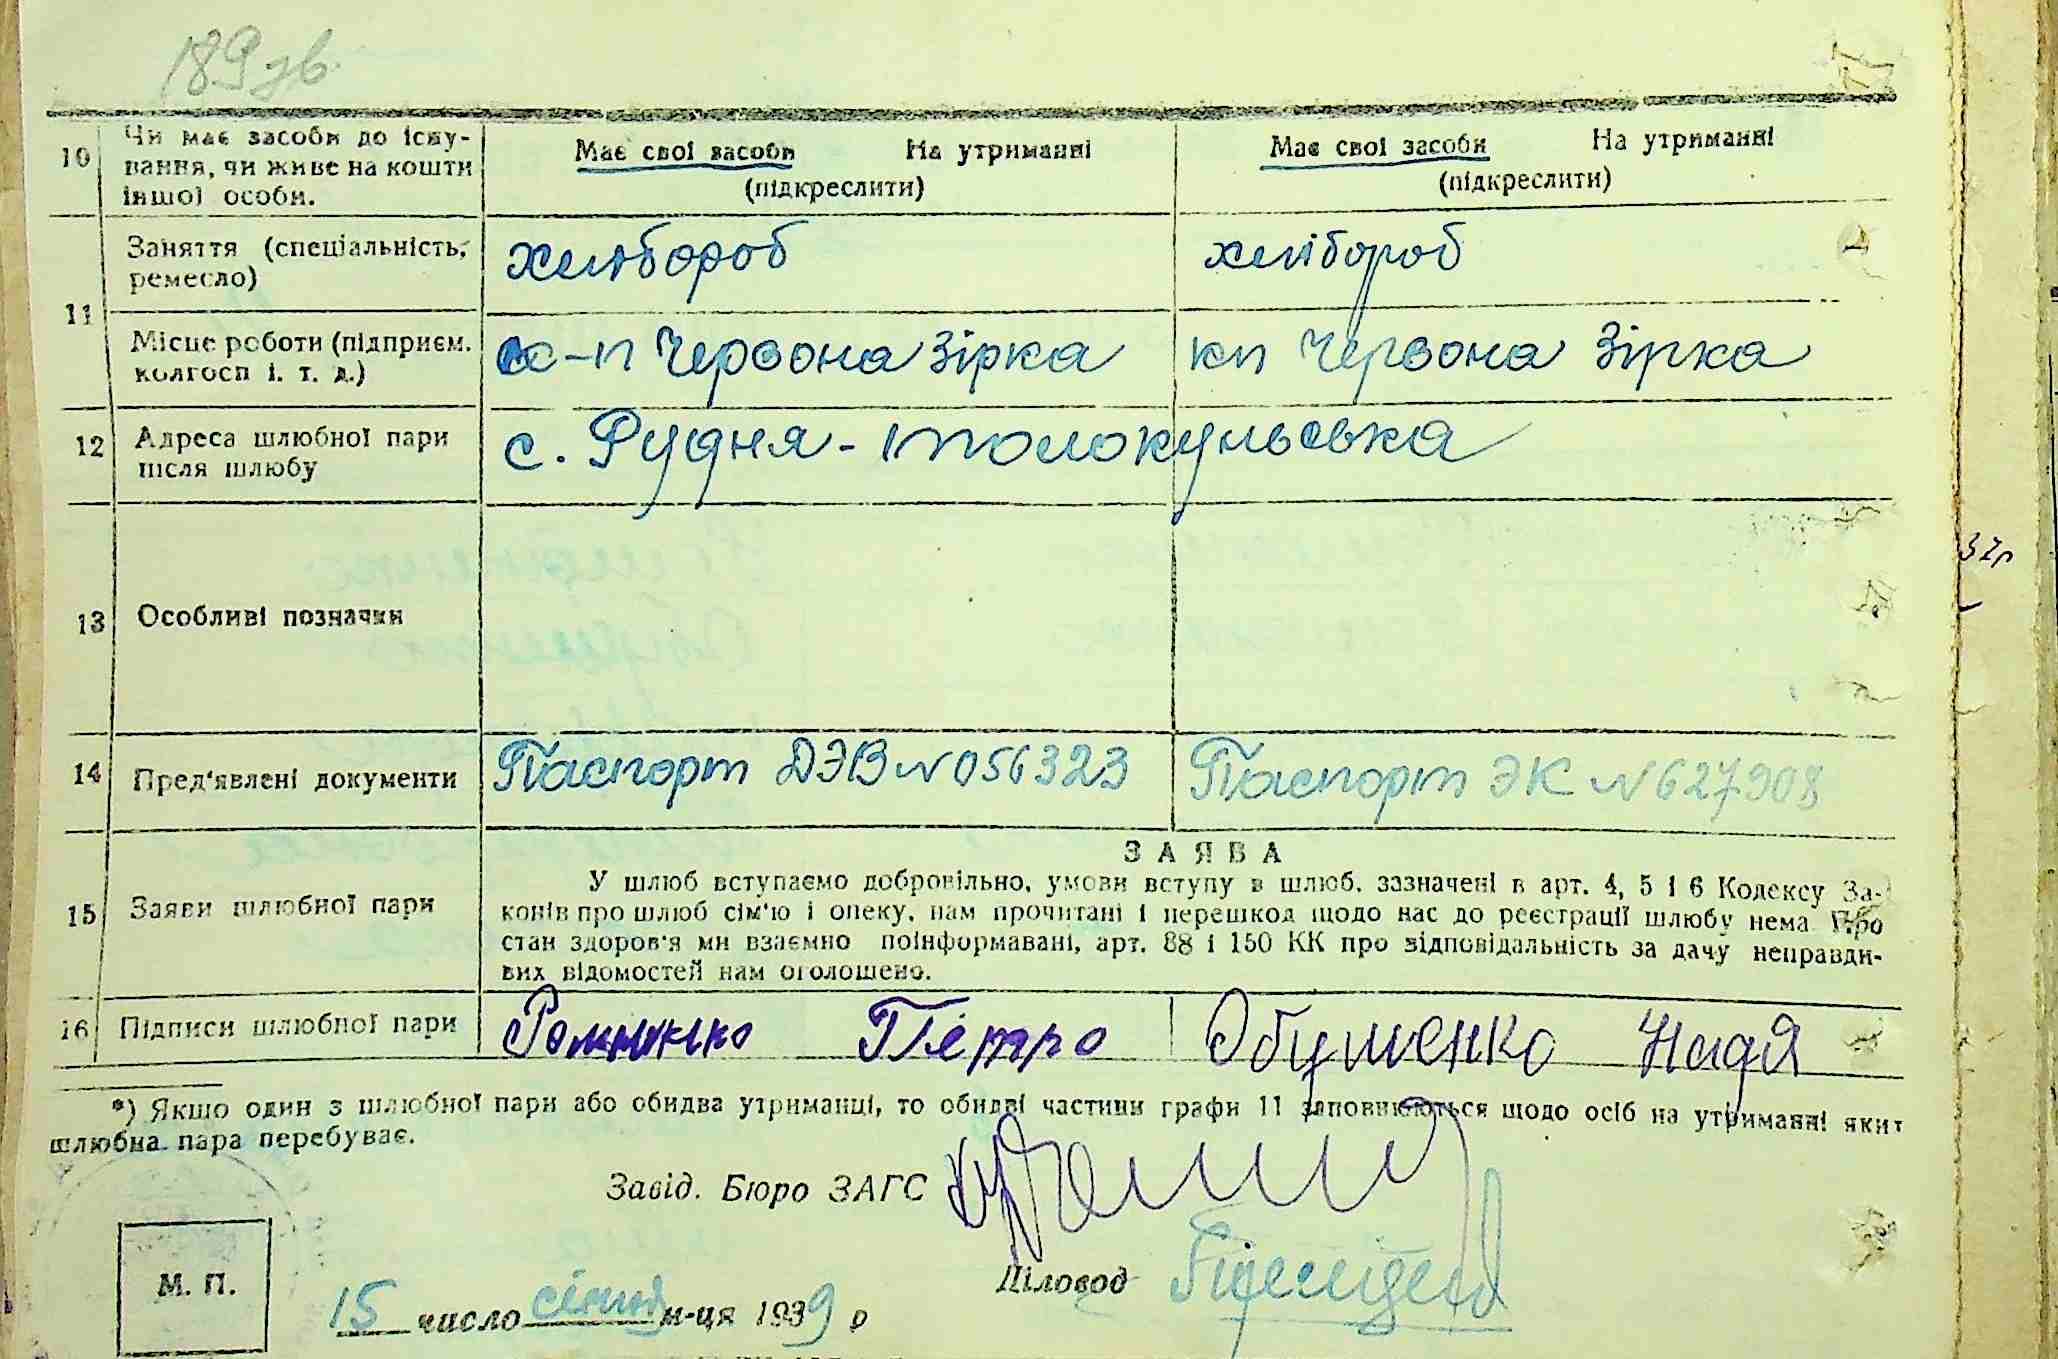 189 зв.
10 Чи має засоби до існу-
вання, чи живе на кошти
іншої особи.
Має свої засоби На утриманні
(підкреслити)
Має свої засоби На утриманні
(підкреслити)
11 Заняття (спеціальність,
ремесло)
хлібороб
хлібороб
Місце роботи (підприєм.
колгосп і. т. д.)
к-п Червона Зірка
кп Червона Зірка
12 Адреса шлюбної пари
після шлюбу
с. Рудня-
13 Особливі позначки
14 Пред'явлені документи
Паспорт ДЭВ № 056323
Паспорт ЭК № 627908
15 Заяви шлюбної пари
ЗАЯВА
У шлюб вступаємо добровільно, умови вступу в шлюб, зазначені в арт. 4, 5 і 6 Кодексу За-
конів про шлюб сім'ю і опеку, нам прочитані і перешкод щодо нас до реєстрації шлюбу нема Про
стан здоров'я ми взаємно поінформавані, арт. 88 і 150 КК про відповідальність за дачу неправди-
вих відомостей нам оголошено.
16 Підписи шлюбної пари
Петро
Обушенко Надя
*) Якщо один з шлюбної пари або обидва утриманці, то обидві частини графи 11 заповнюються щодо осіб на утриманні яких
шлюбна пара перебуває.
Завід. Бюро ЗАГС
Діловод
М. П.
15 число січня м-ця 1939 р
37р